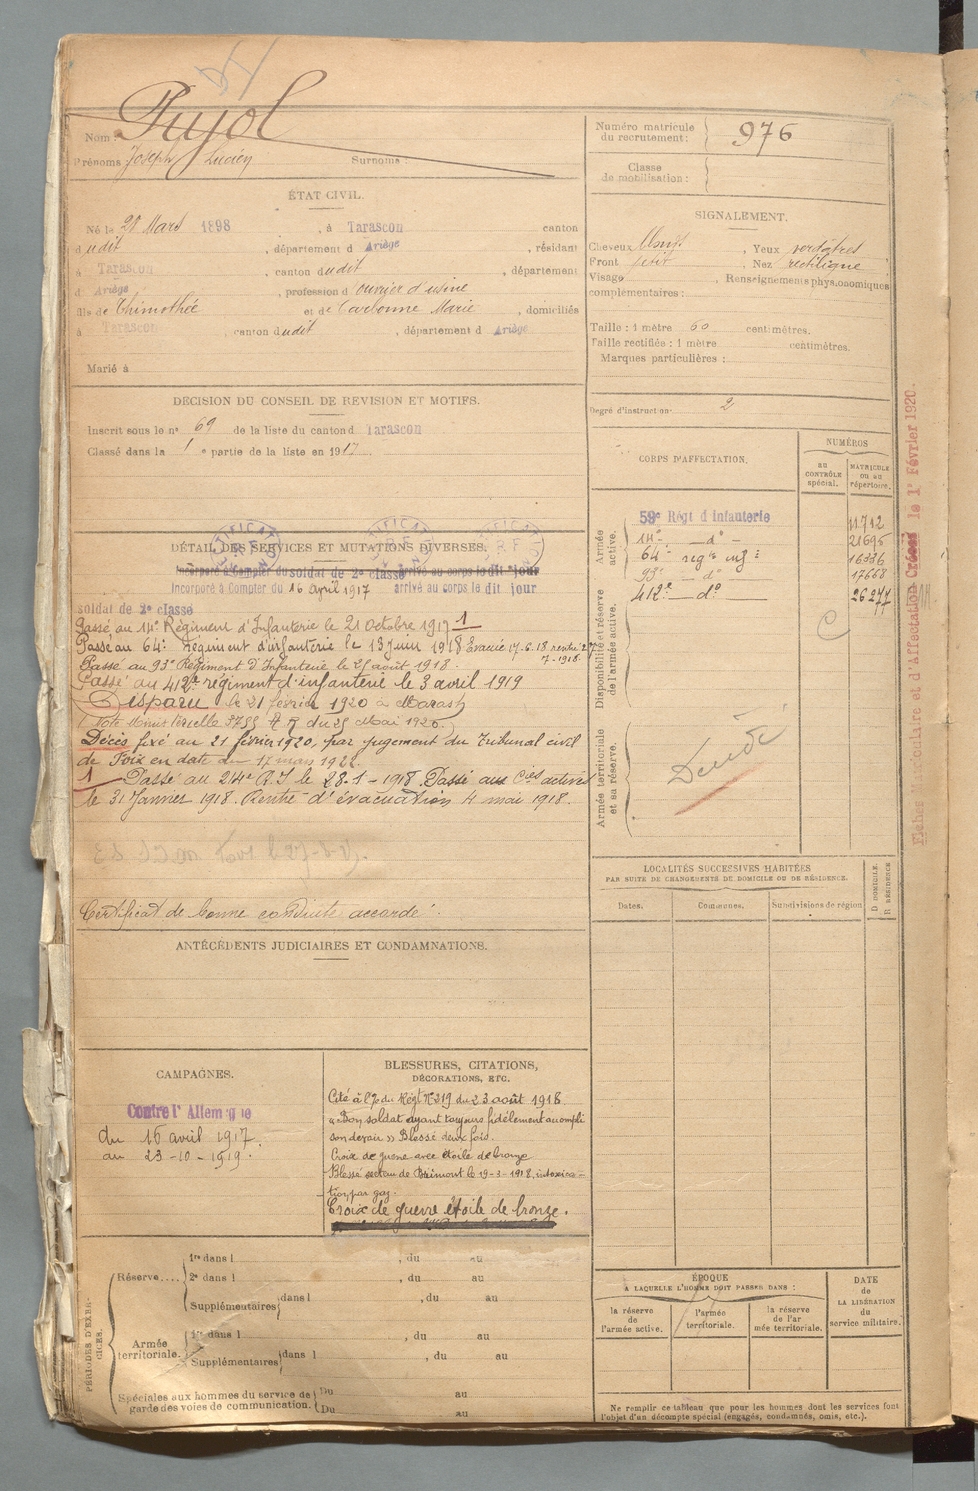 Pujol
Nom :
Prénoms Joseph Lucien Surnoms :
ÉTAT CIVIL.
Né le 21 Mars 1898, à Tarascon canton
dudit, département d Ariège, résidant
à Tarascon, canton dudit, département
d Ariège, profession d ouvrier d'usine
fils de Thimothée et de Carbonne Marie, domiciliés
à Tarascon, canton dudit, département d Ariège
Marié à
DÉCISION DU CONSEIL DE REVISION ET MOTIFS.
Inscrit sous le no 69 de la liste du canton d Tarascon
Classé dans la 1e partie de la liste en 1917.
DÉTAIL DES SERVICES ET MUTATIONS DIVERSES.
Incorporé à Compter du soldat de 2e classe arrivé au corps le dit jour
Incorporé à Compter du 16 avril 1917 arrivé au corps le dit jour
soldat de 2e classe
Passé au 14e Régiment d'Infanterie le 21 octobre 1917 1
Passé au 64e Régiment d'infanterie le 13 juin 1918 Evacué 17-6-18 rentré 27
7-1918.
Passé au 93e Régiment D'Infanterie le 27 août 1918.
Passé au 412e régiment d'infanterie le 3 avril 1919
Disparu le 21 février 1920 à Marash
(Note Ministérielle du 29 Mai 1920.)
Décès fixé au 21 février 1920, par jugement du Tribunal civil
de Foix en date du 17 mars 1922.
1 Passé au 214e R.I le 28-1-1918. Passé aux Cies actives
le 31 Janvier 1918. Rentré d'évacuation 4 mai 1918.
Certificat de bonne conduite accordé
ANTÉCÉDENTS JUDICIAIRES ET CONDAMNATIONS.
CAMPAGNES.
Contre l'Allemagne
du 16 avril 1917.
au 23-10-1919.
BLESSURES, CITATIONS,
DÉCORATIONS, ETC.
Cité à l'o/ du Régt No 319 du 23 août 1918
« Bon soldat ayant toujours fidèlement accompli
son devoir » Blessé deux fois.
Croix de guerre avec étoile de bronze
Blessé secteur de le 19-3-1918, intoxica-
tion par gaz.
Croix de guerre étoile de bronze.
PÉRIODES D'EXERCICES.
Réserve....
1re dans l , du au
2e dans l , du au
Supplémentaires dans l , du au
Armée
territoriale.
1re dans l , du au
Supplémentaires dans l , du au
Spéciales aux hommes du service de
garde des voies de communication.
Du au
Du au
Numéro matricule
du recrutement :
976
Classe
de mobilisation :
SIGNALEMENT.
Cheveux , Yeux verdâtres
Front petit , Nez rectiligne
Visage Renseignements physionomiques
complémentaires :
Taille : 1 mètre 60 centimètres.
Taille rectifiée : 1 mètre centimètres.
Marques particulières :
Degré d'instruction 2
CORPS D'AFFECTATION.
NUMÉROS
au
CONTRÔLE
spécial.
MATRICULE
ou au
répertoire.
Armée
active.
59e Régt d'Infanterie 11712
14e — do — 21695
64e regt inf ie 16336
93e — do 17668
412e — do — 26277
Disponibilité et réserve
de l'armée active.
C
Armée territoriale
et sa réserve.
Décédé
LOCALITÉS SUCCESSIVES HABITÉES
PAR SUITE DE CHANGEMENTS DE DOMICILE OU DE RÉSIDENCE.
D DOMICILE.
R RÉSIDENCE
Dates. Communes. Subdivisions de région
ÉPOQUE
A LAQUELLE L'HOMME DOIT PASSER DANS :
la réserve
de
l'armée active.
l'armée
territoriale.
la réserve
de l'ar
mée territoriale.
DATE
de
LA LIBÉRATION
du
service militaire.
Ne remplir ce tableau que pour les hommes dont les services font
l'objet d'un décompte spécial (engagés, condamnés, omis, etc.).
Fiches Matriculaire et d'Affectation Créées le 1r Février 1920.